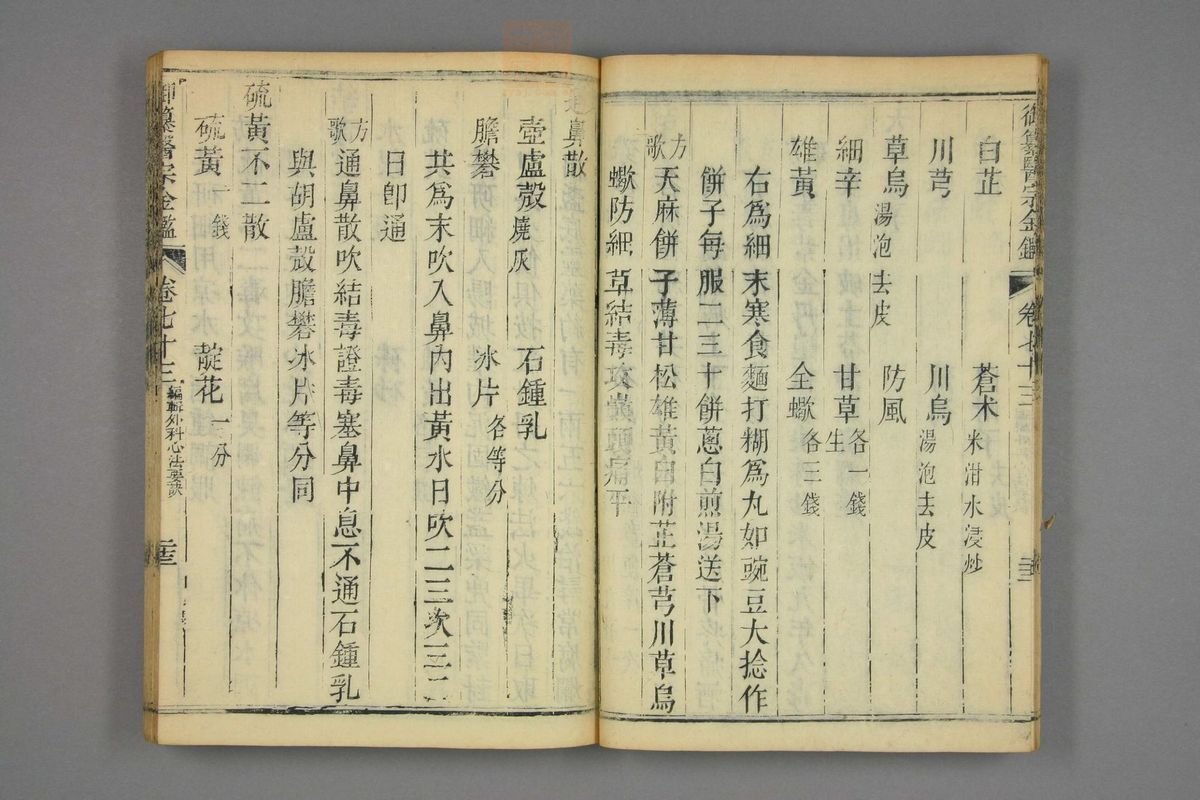 御纂醫宗金鑑 卷七十三
白芷 蒼朮米泔水浸炒
川芎 川烏湯泡去皮
草烏湯泡去皮 防風
細辛 甘草生各一錢
雄黃 全蠍各三錢
右爲細末寒食麵打糊爲丸如豌豆大捻作
餅子每服二三十餅蔥白煎湯送下
方歌 天麻餅子薄甘松雄黃白附芷蒼芎川草烏
蠍防細草結毒攻巓頂痛平
鼻散
壺盧殼燒灰 石鍾乳
膽礬 冰片各等分
共爲末吹入鼻內出黃水日吹二三次三二
日卽通
方歌 通鼻散吹結毒證毒塞鼻中息不通石鍾乳
與胡盧殼膽礬冰片等分同
硫黃不二散
硫黃一錢 靛花一分
御纂醫宗金鑑 卷七十三 編輯外科心法要訣